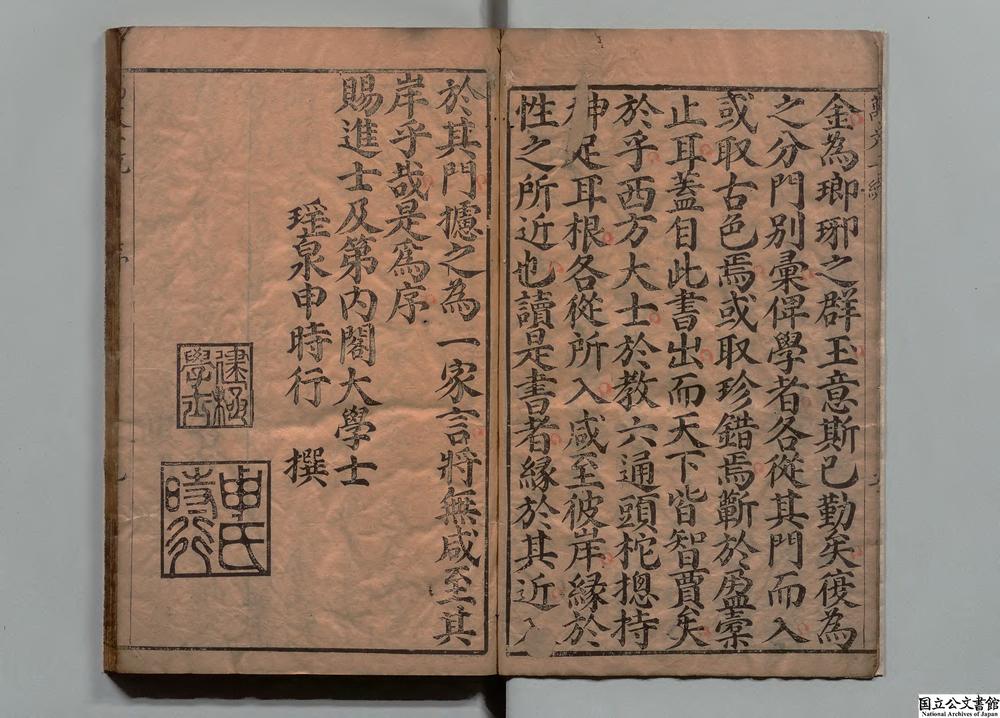 金為瑯琊之群玉意斯已勤矣復為
之分門別彙俾學者各從其門而入
或取古色焉或取珍錯焉蘄於盈橐
止耳蓋自此書出而天下皆智賈矣
於乎西方大士於教六通頭柁摠持
神足耳根各從所入咸至彼岸緣於
性之所近也讀是書者緣於其近入
於其門攄之為一家言將無咸至其
岸乎哉是爲序
賜進士及第內閣大學士
瑶泉申時行 撰
建極
學士
申氏
時行
国立公文書館
National Archives of Japan